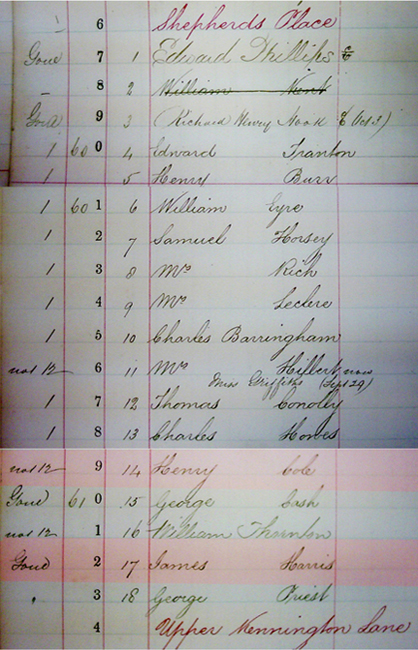 6 Shepherds Place
Gone 7 1 Edward Phillips
8 2 William Kent
Gone 9 3 (Richard Henry Nook Oct 3)
1 60 0 4 Edward Franton
1 5 Henry Burr
1 60 1 6 William Eyre
1 2 7 Samuel Horsey
1 3 8 Mrs Rich
1 4 9 Mrs Leclere
1 5 10 Charles Barringham
not 12 6 11 Mrs Hilbert now
Miss Griffiths (Sept 29)
1 7 12 Thomas Conolly
1 8 13 Charles Howes
not 12 9 14 Henry Cole
Gone 61 0 15 George Cash
not 12 1 16 William Thornton
Gone 2 17 James Harris
3 18 George Priest
4 Upper Kennington Lane